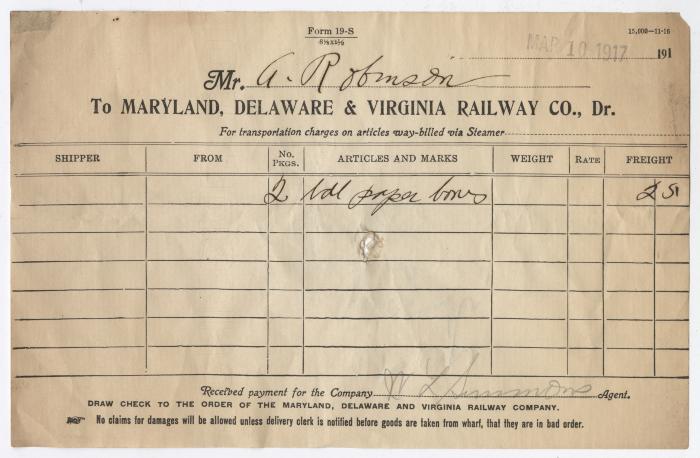 Form 19-S
8½x5½
15,000—11-16
MAR 10 1917 191
Mr. A. Robinson
To MARYLAND, DELAWARE & VIRGINIA RAILWAY CO., Dr.
For transportation charges on articles way-billed via Steamer
SHIPPER FROM No. PKGS. ARTICLES AND MARKS WEIGHT RATE FREIGHT
2 bdl paper boxes 2 51
Received payment for the Company W L Simmons Agent.
DRAW CHECK TO THE ORDER OF THE MARYLAND, DELAWARE AND VIRGINIA RAILWAY COMPANY.
No claims for damages will be allowed unless delivery clerk is notified before goods are taken from wharf, that they are in bad order.